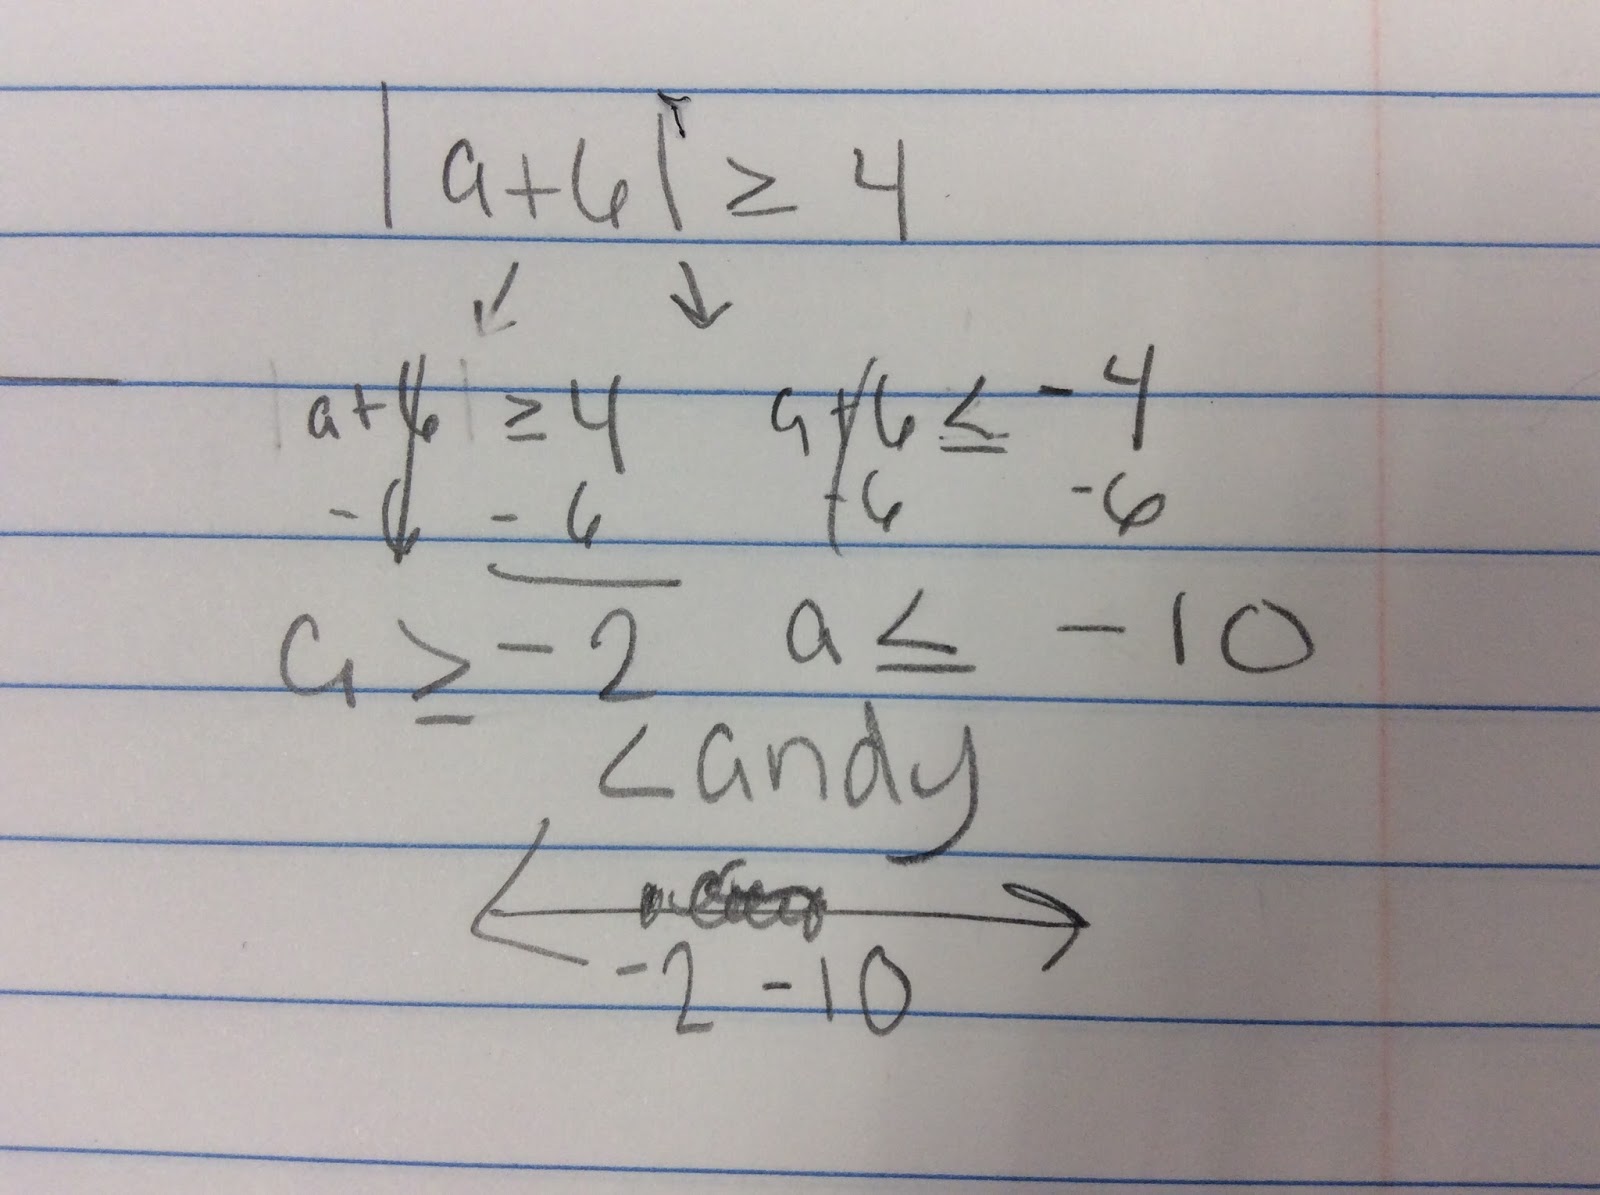 |a+6| ≥ 4
↙ ↓
a+6 ≥ 4 a+6 ≤ -4
-6 -6 -6 -6
a ≥ -2 a ≤ -10
<andy
-2 -10